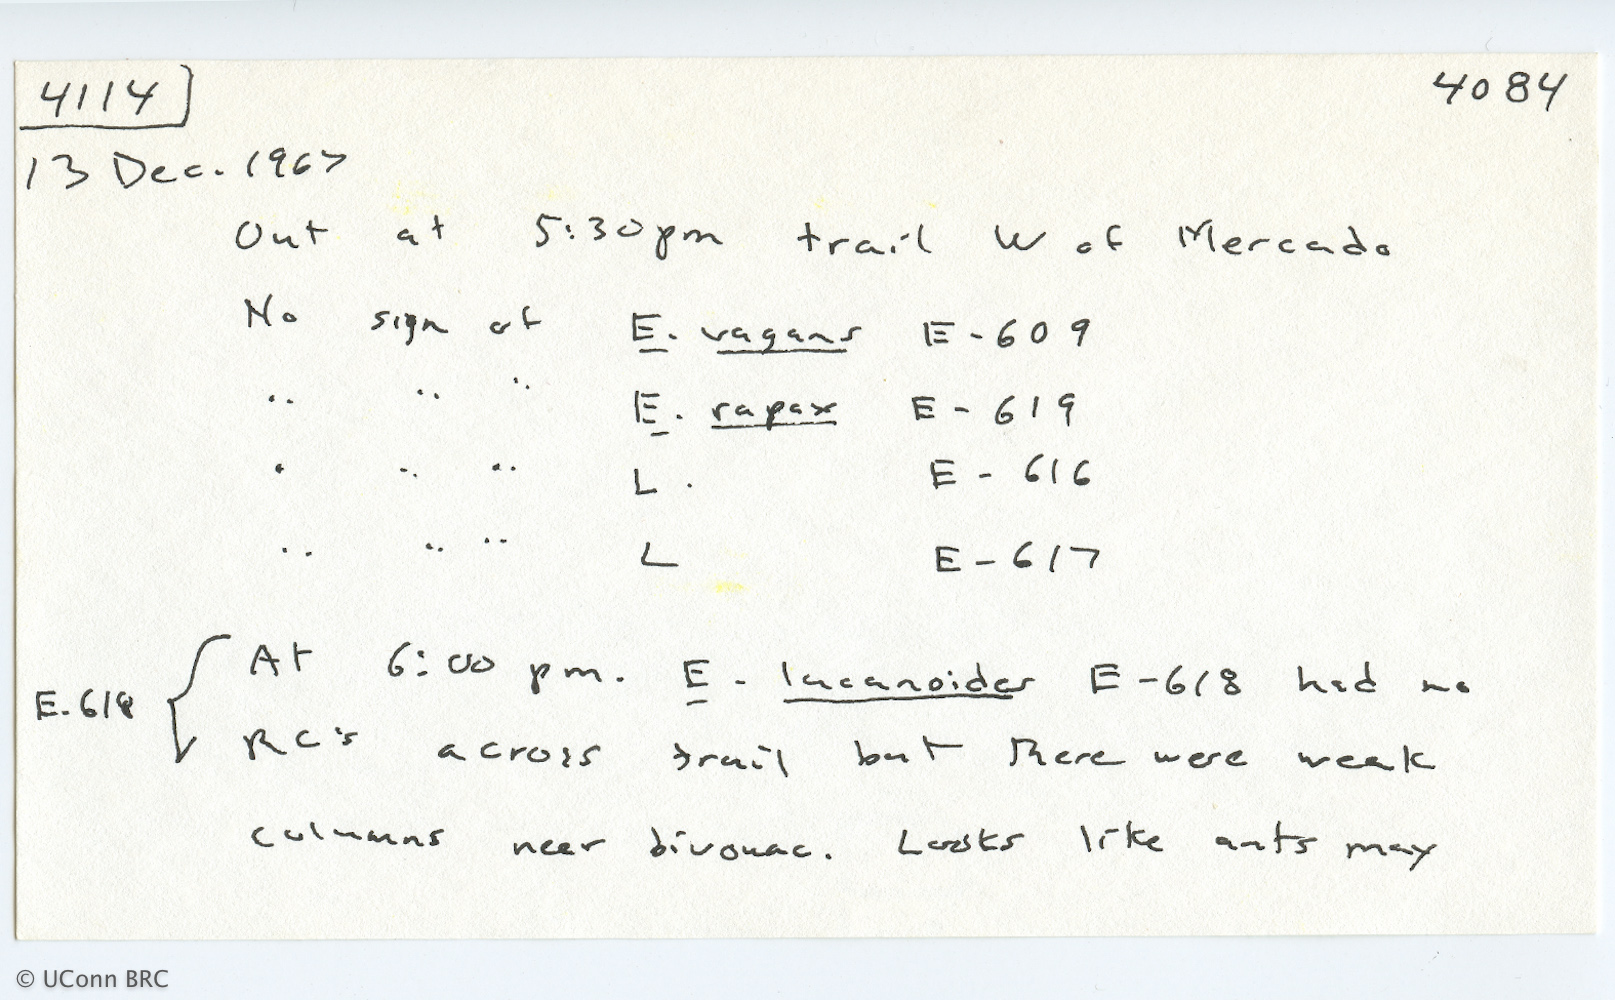 4114 4084
13 Dec. 1967
Out at 5:30pm trail W of Mercado
No sign of E. vagans E-609
" " " E. rapax E-619
" " " L. E-616
" " " L E-617
At 6:00 pm. E. lucanoides E-618 had no
E.618 RC's across trail but there were weak
columns near bivouac. Looks like ants may
© UConn BRC